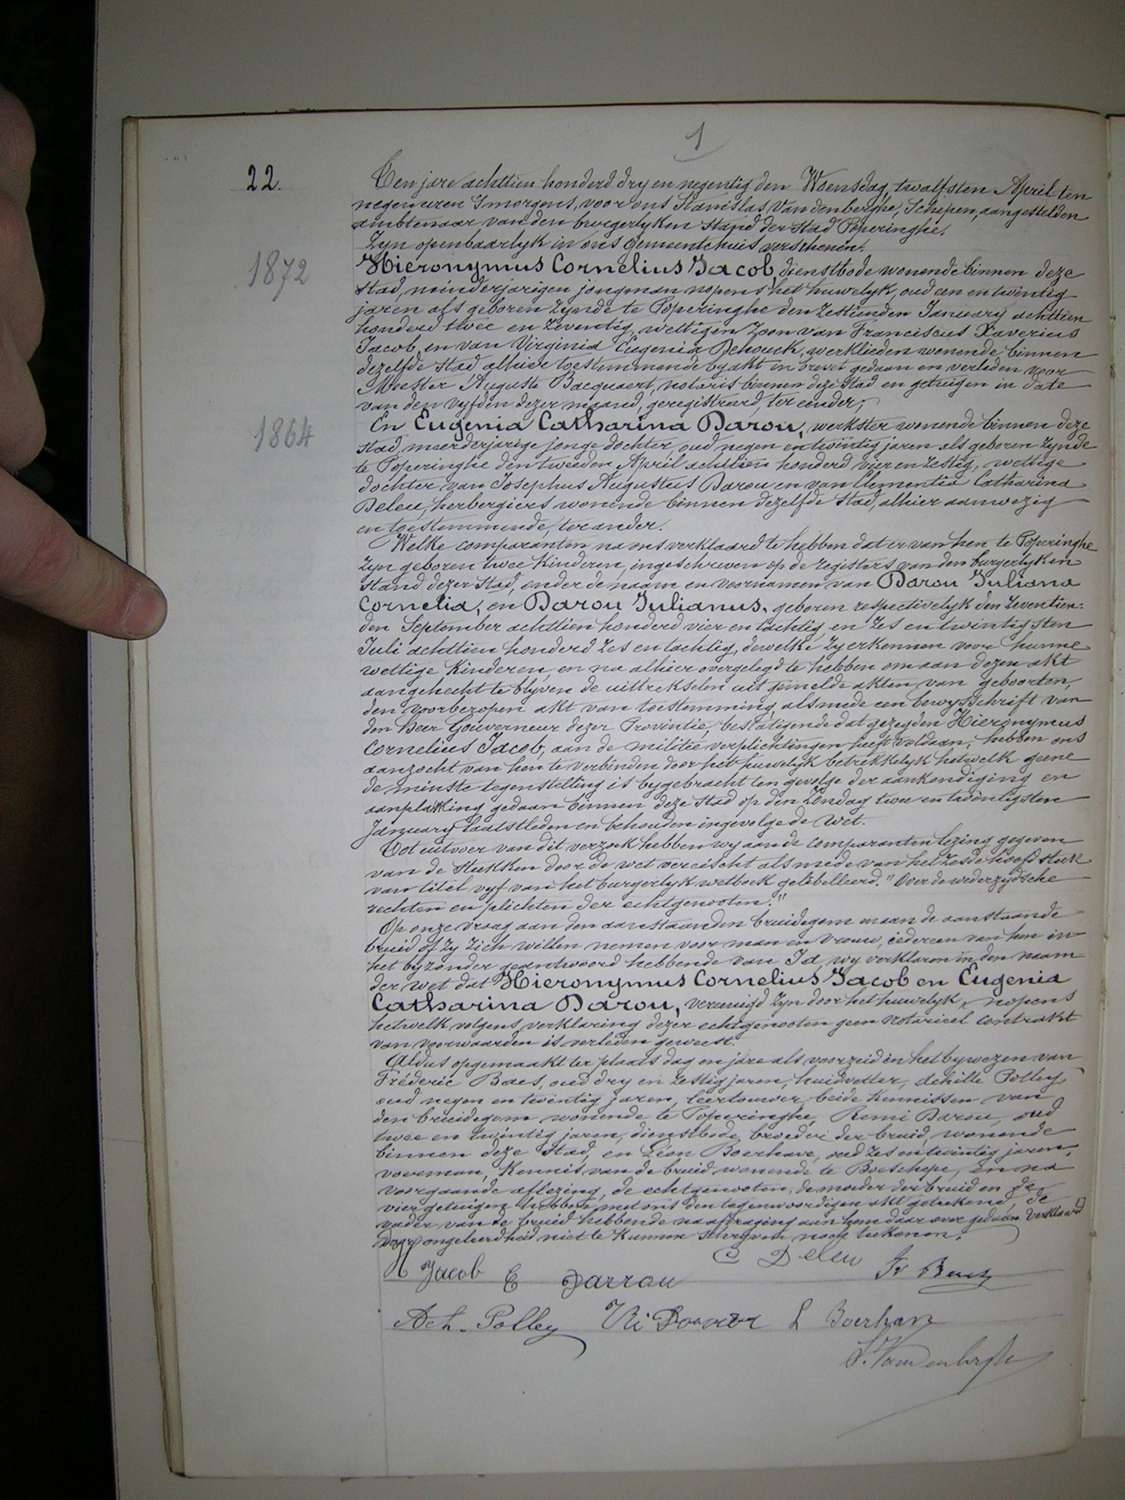 1
22.
Ten jare achttien honderd dry en negentig den Woensdag, twalfsten April ten
negen uren 's morgens, voor ons Stanislas Vandenberghe, Schepen, aangestelden
ambtenaar van den burgerlyken stand der stad Poperinghe,
Zyn openbaarlyk in ons Gemeentehuis verschenen:
1872
Hieronymus Cornelius Jacob, dienstbode wonende binnen deze
stad, minderjarigen jongman nopens het huwelyk, oud een en twintig
jaren als geboren zynde te Poperinghe den zestienden January achttien
honderd twee en zeventig, wettigen zoon van Franciscus Xaverius
Jacob, en van Virginia Eugenia Dehouck, werklieden wonende binnen
dezelfde stad, alhier toestemmende by akt in brevet gedaan en verleden voor
Meester Auguste Bacquaert, notaris binnen deze stad en getuigen in date
van den vyfden dezer maand, geregistreerd, ter eender;
1864
En Eugenia Catharina Darou, werkster wonende binnen deze
stad, meerderjarige jonge dochter, oud negen en twintig jaren als geboren zynde
te Poperinghe den tweeden April achttien honderd vier en zestig, wettige
dochter van Josephus Augustus Darou en van Clementia Catharina
Deleu, herbergiers wonende binnen dezelfde stad, alhier aanwezig
en toestemmende, ter ander.
Welke comparanten na ons verklaard te hebben dat er van hen te Poperinghe
zyn geboren twee kinderen, ingeschreven op de registers van den burgerlyken
stand dezer stad, onder de naam en voornamen van Darou Juliana
Cornelia, en Darou Julianus, geboren respectivelyk den zeventien-
den September achttien honderd vier en tachtig en zes en twintigsten
Juli achttien honderd zes en tachtig, dewelke zy erkennen voor hunne
wettige kinderen, en na alhier overgelegd te hebben om aan dezen akt
aangehecht te blyven de uittrekselen uit gemelde akten van geboorten,
den voorberopen akt van toestemming, alsmede een bewysschrift van
den Heer Gouverneur dezer Provintie, bestatigende dat gezegden Hieronymus
Cornelius Jacob, aan de militie verplichtingen heeft voldaan, hebben ons
aanzocht van hen te verbinden door het huwelyk betrekkelyk hetwelk geene
de minste tegenstelling is bygebracht ten gevolge der aankondiging en
aanplakking gedaan binnen deze stad op den Zondag twee en twintigsten
January laatstleden en behouden ingevolge de wet.
Tot uitvoer van dit verzoek hebben wy aan de comparanten lezing gegeven
van de stukken door de wet vereischt alsmede van het zesde hoofdstuk
van titel vyf van het burgerlyk wetboek gelibelleerd: "Over de wederzydsche
rechten en plichten der echtgenoten."
Op onze vraag aan den aanstaanden bruidegom en aan de aanstaande
bruid of zy zich willen nemen voor man en vrouw, iedereen van hen in
het byzonder geantwoord hebbende van Ja, wy verklaren in den naam
der wet dat Hieronymus Cornelius Jacob en Eugenia
Catharina Darou, vereenigd zyn door het huwelyk, nopens
hetwelk volgens verklaring dezer echtgenoten geen notarieel contrakt
van voorwaarden is verleden geweest.
Aldus opgemaakt ter plaats dag en jare als voorzeid in het bywezen van
Fréderic Baes, oud dry en zestig jaren, huidvetter, Achille Polley,
oud negen en twintig jaren, leertouwer, beide kennissen van
den bruidegom wonende te Poperinghe, Remi Darou, oud
twee en twintig jaren, dienstbode, broeder der bruid, wonende
binnen deze stad, en Léon Boerhave, oud zes en twintig jaren,
voerman, kennis van de bruid wonende te Boeschepe, en na
voorgaande aflezing, de echtgenoten, de moeder der bruid en de
vier getuigen hebben met ons den tegenwoordigen akt geteekend, de
vader van de bruid hebbende na afvraging aan hem daar over gedaan verklaard
door ongeleerdheid niet te kunnen schryven noch teekenen.
H Jacob E Darrou C Deleu
Ach. Polley L Boerhave
S. Vandenberghe